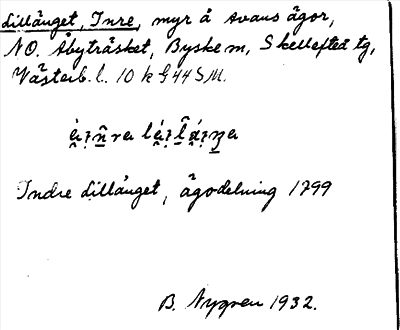 Lillänget, Inre, myr å Avans ägor,
NO. Åbyträsket, Byske sn, Skellefteå tg,
Västerb. l. 10 k G 44 SM.
Indre Lillänget, ägodelning 1799
B. Nygren 1932.